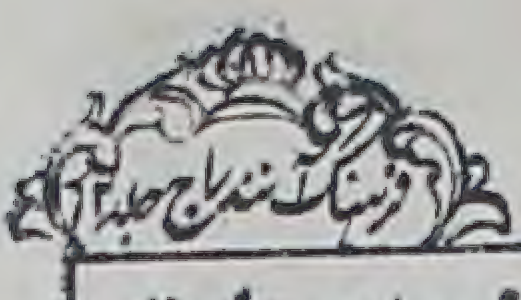 فرہنگ آنند راج جلد ۲